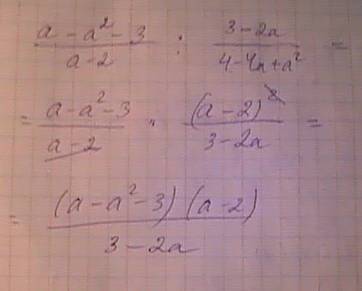 (a - a² - 3)/(a - 2) : (3 - 2a)/(4 - 4a + a²) =
= (a - a² - 3)/(a - 2) · (a - 2)²/(3 - 2a) =
= (a - a² - 3)(a - 2)/(3 - 2a)